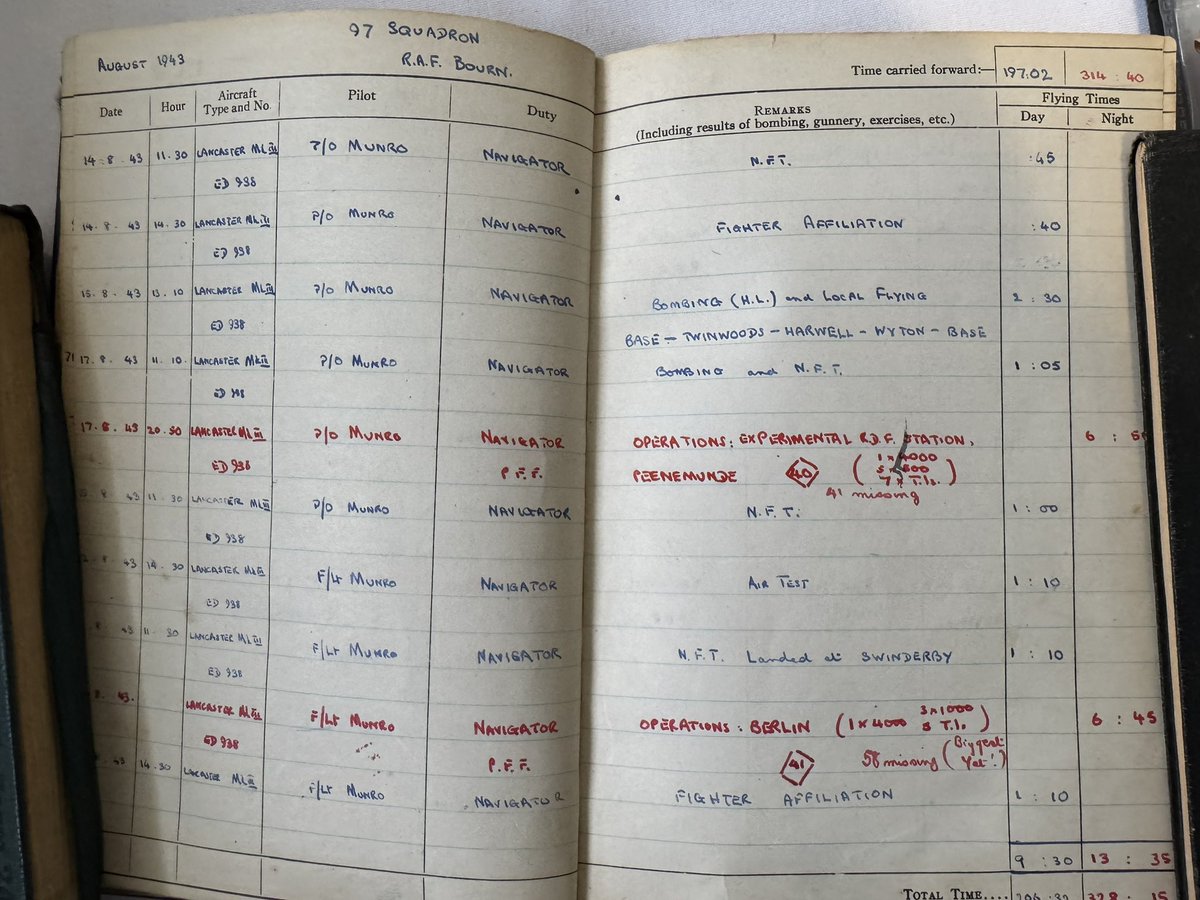 97 SQUADRON
AUGUST 1943 R.A.F. BOURN.
Date Hour Aircraft Type and No. Pilot Duty
14.8.43 11.30 LANCASTER Mk III P/O MUNRO NAVIGATOR
ED 938
14.8.43 14.30 LANCASTER Mk III P/O MUNRO NAVIGATOR
ED 938
15.8.43 13.10 LANCASTER Mk III P/O MUNRO NAVIGATOR
ED 938
17.8.43 11.10. LANCASTER Mk III P/O MUNRO NAVIGATOR
ED 938
17.8.43 20.50 LANCASTER Mk III P/O MUNRO NAVIGATOR
ED 938 P.F.F.
8.43 11.30 LANCASTER Mk III P/O MUNRO NAVIGATOR
ED 938
.8.43 14.30 LANCASTER Mk III F/Lt MUNRO NAVIGATOR
ED 938
43 11.30 LANCASTER Mk III F/Lt MUNRO NAVIGATOR
ED 938
8.43. LANCASTER Mk III F/Lt MUNRO NAVIGATOR
ED 938 P.F.F.
43 14.30 LANCASTER Mk III F/Lt MUNRO NAVIGATOR
Time carried forward:— 197.02 314:40
REMARKS Flying Times
(Including results of bombing, gunnery, exercises, etc.) Day Night
N.F.T. :45
FIGHTER AFFILIATION :40
BOMBING (H.L.) and LOCAL FLYING 2:30
BASE — TWINWOODS — HARWELL — WYTON — BASE
BOMBING and N.F.T. 1:05
OPERATIONS: EXPERIMENTAL R.D.F. STATION, 6:
PEENEMUNDE 40 (1 x 4000
5 x 500
7 x T.I.s.)
41 missing
N.F.T. 1:00
AIR TEST 1:10
N.F.T. Landed at SWINDERBY 1:10
OPERATIONS: BERLIN (1 x 4000 3 x 1000 T.I.) 6:45
41 missing (Biggest Yet!)
FIGHTER AFFILIATION 1:10
9:30 13:35
TOTAL TIME.... 328.15